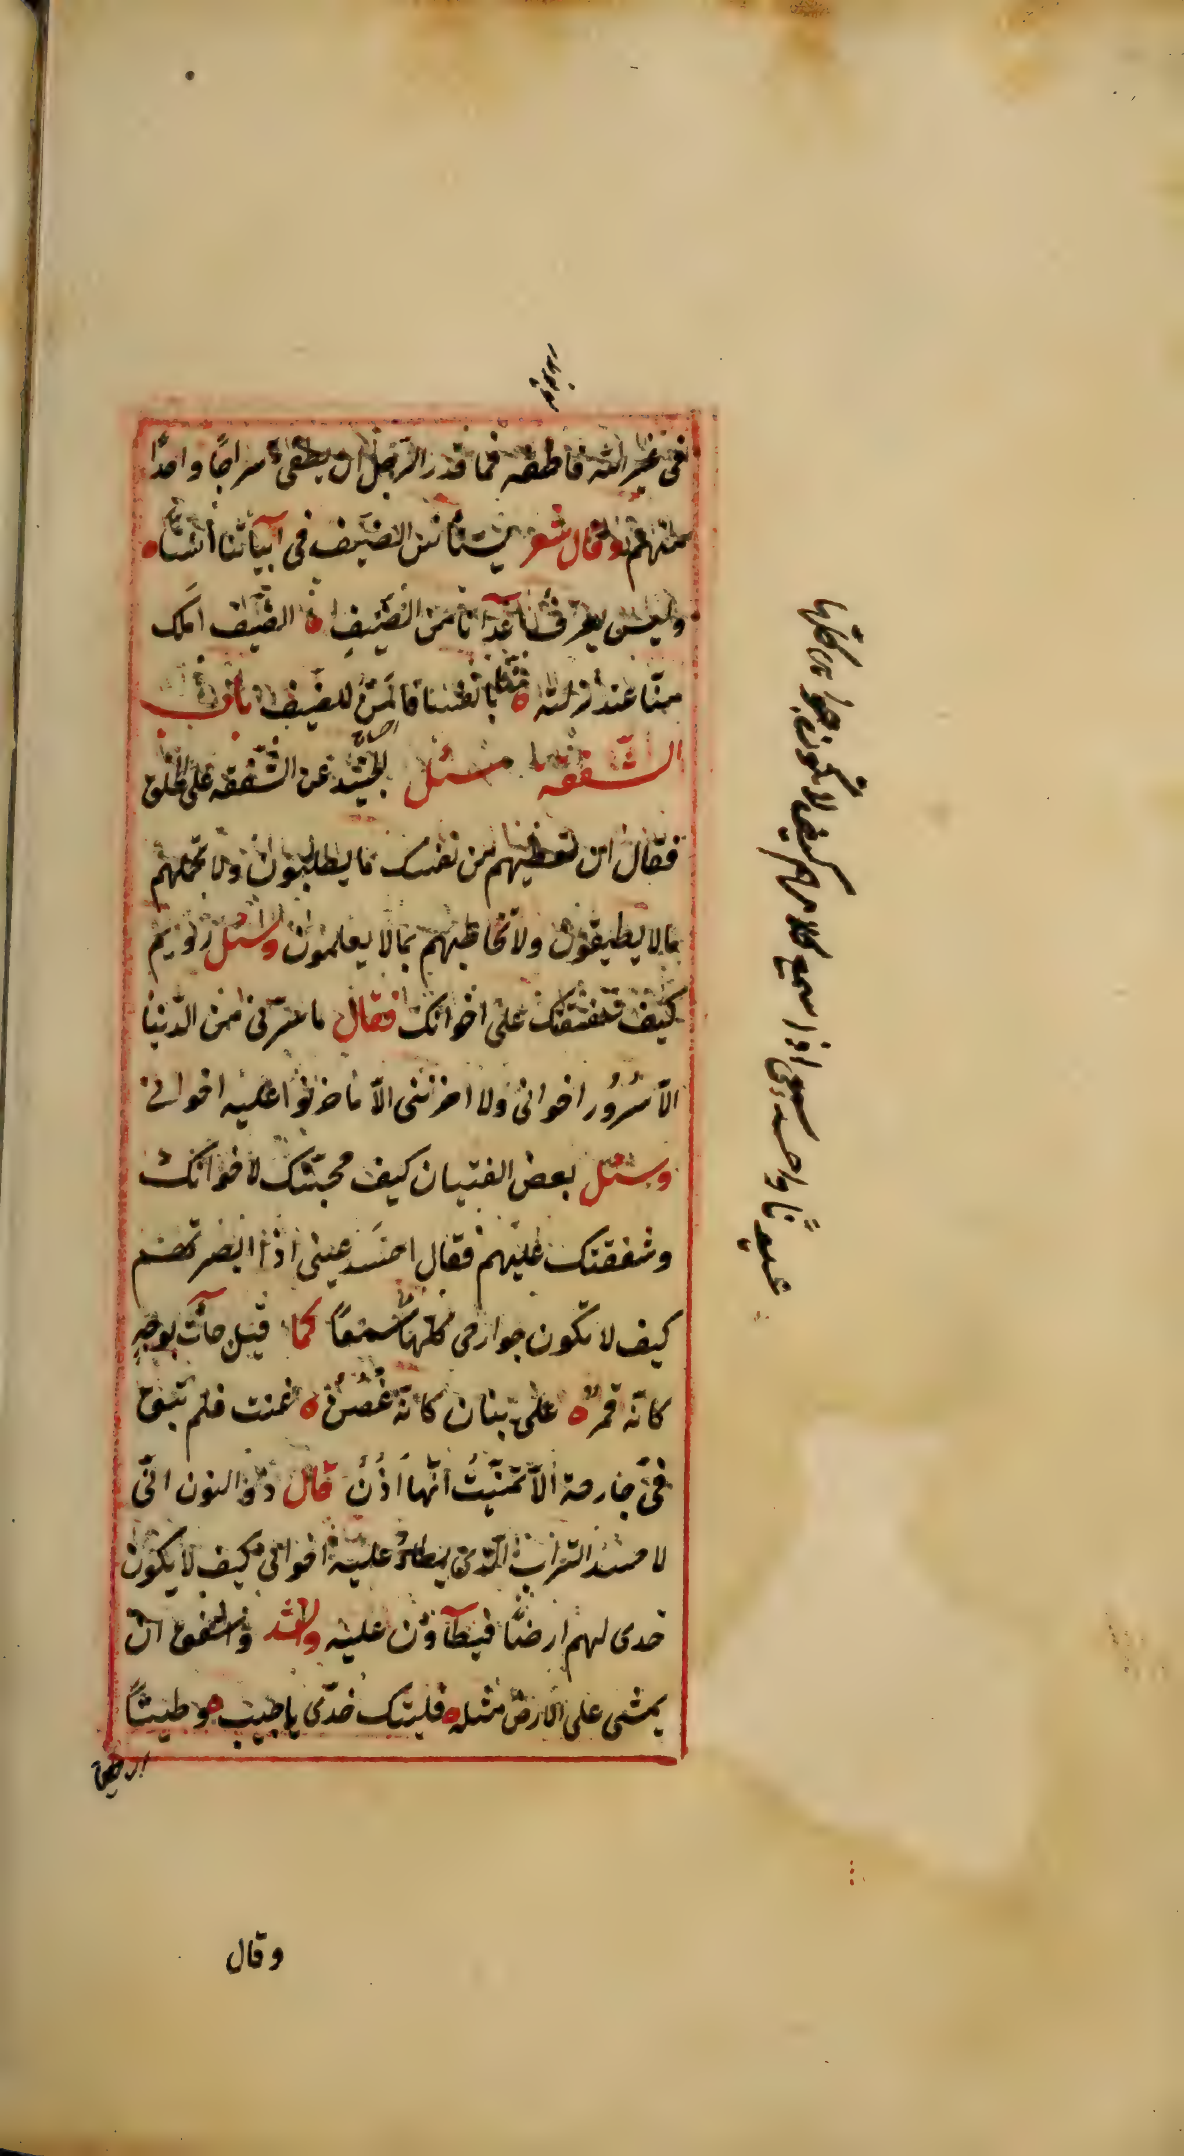 فى غير الله فاطفه فما قدر الرّجل ان يطفى سراجًا واحدًا
منها وقال شعر يستأنس الضيف فى ابياتنا ابدًا ه
وليس يعرف خلق اينا من الضيف ه الضيف املك
منّا عند نزلته ه بانفسنا فالمنّ للضيف باب
الشفقة سئل الجنيد عن الشفقة على الخلق
فقال ان تعطيهم من نفسك ما يطلبون ولا تحملهم
مالا يطيقون ولا تخاطبهم بمالا يعلمون وسئل رويم
كيف شفقتك على اخوانك فقال ما سرّنى من الدّنيا
الّا سُرُور اخوانى ولا احزننى الّا ما حزنوا عليه اخوانى
وسئل بعض الفتيان كيف محبّتك لاخوانك
وشفقتك عليهم فقال احسد عينى اذا ابصرتهم
كيف لا تكون جوارحى كلها سمعًا كما قيل جآت بوجهٍ
كانّه قمرٌ ه على بنان كانّه غُصُنٌ ه غنت فلم تبق
فىّ جارحة الّا تمنّيتُ انّها اُذُنُ قال ذو النون انّى
لاحسد التراب الّذى يطأ عليه اخوانى كيف لا يكون
خدى لهم ارضًا فيطآؤن عليه وانشد واشفق ان
يمشى على الارض مثله ه فليتك خدّى يا حبيب ه وطيتًا
وقال
عيونًا واحسد سمعى اذا سمع كلامهم كيف لا تكون جوارحى كلها